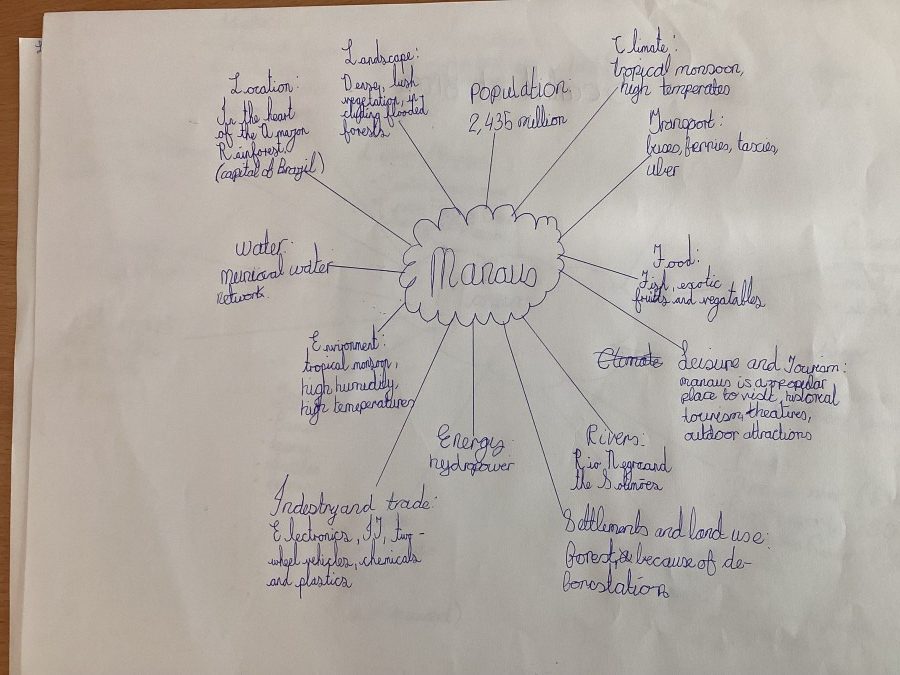 Manaus
Location:
In the heart
of the Amazon
Rainforest
(capital of Brazil)
Landscape:
Dense, lush
vegetation, in-
cluding flooded
forests
Population:
2,435 million
Climate:
tropical monsoon,
high temperates
Transport:
buses, ferries, taxies,
uber
Food:
Fish, exotic
fruits and vegatables
Climate
Leisure and Tourism:
manaus is a propular
place to visit, historical
tourism, theatires,
outdoor attractions
Rivers:
Rio Negro and
the Solimões
Settlements and land use:
forest, because of de-
forestation
Energy:
hydropower
Indestry and trade:
Electronics, IT, two-
wheel vehicles, chemicals
and plastics
Environment:
tropical monsoon,
high humidity,
high temperatures
Water:
water
network